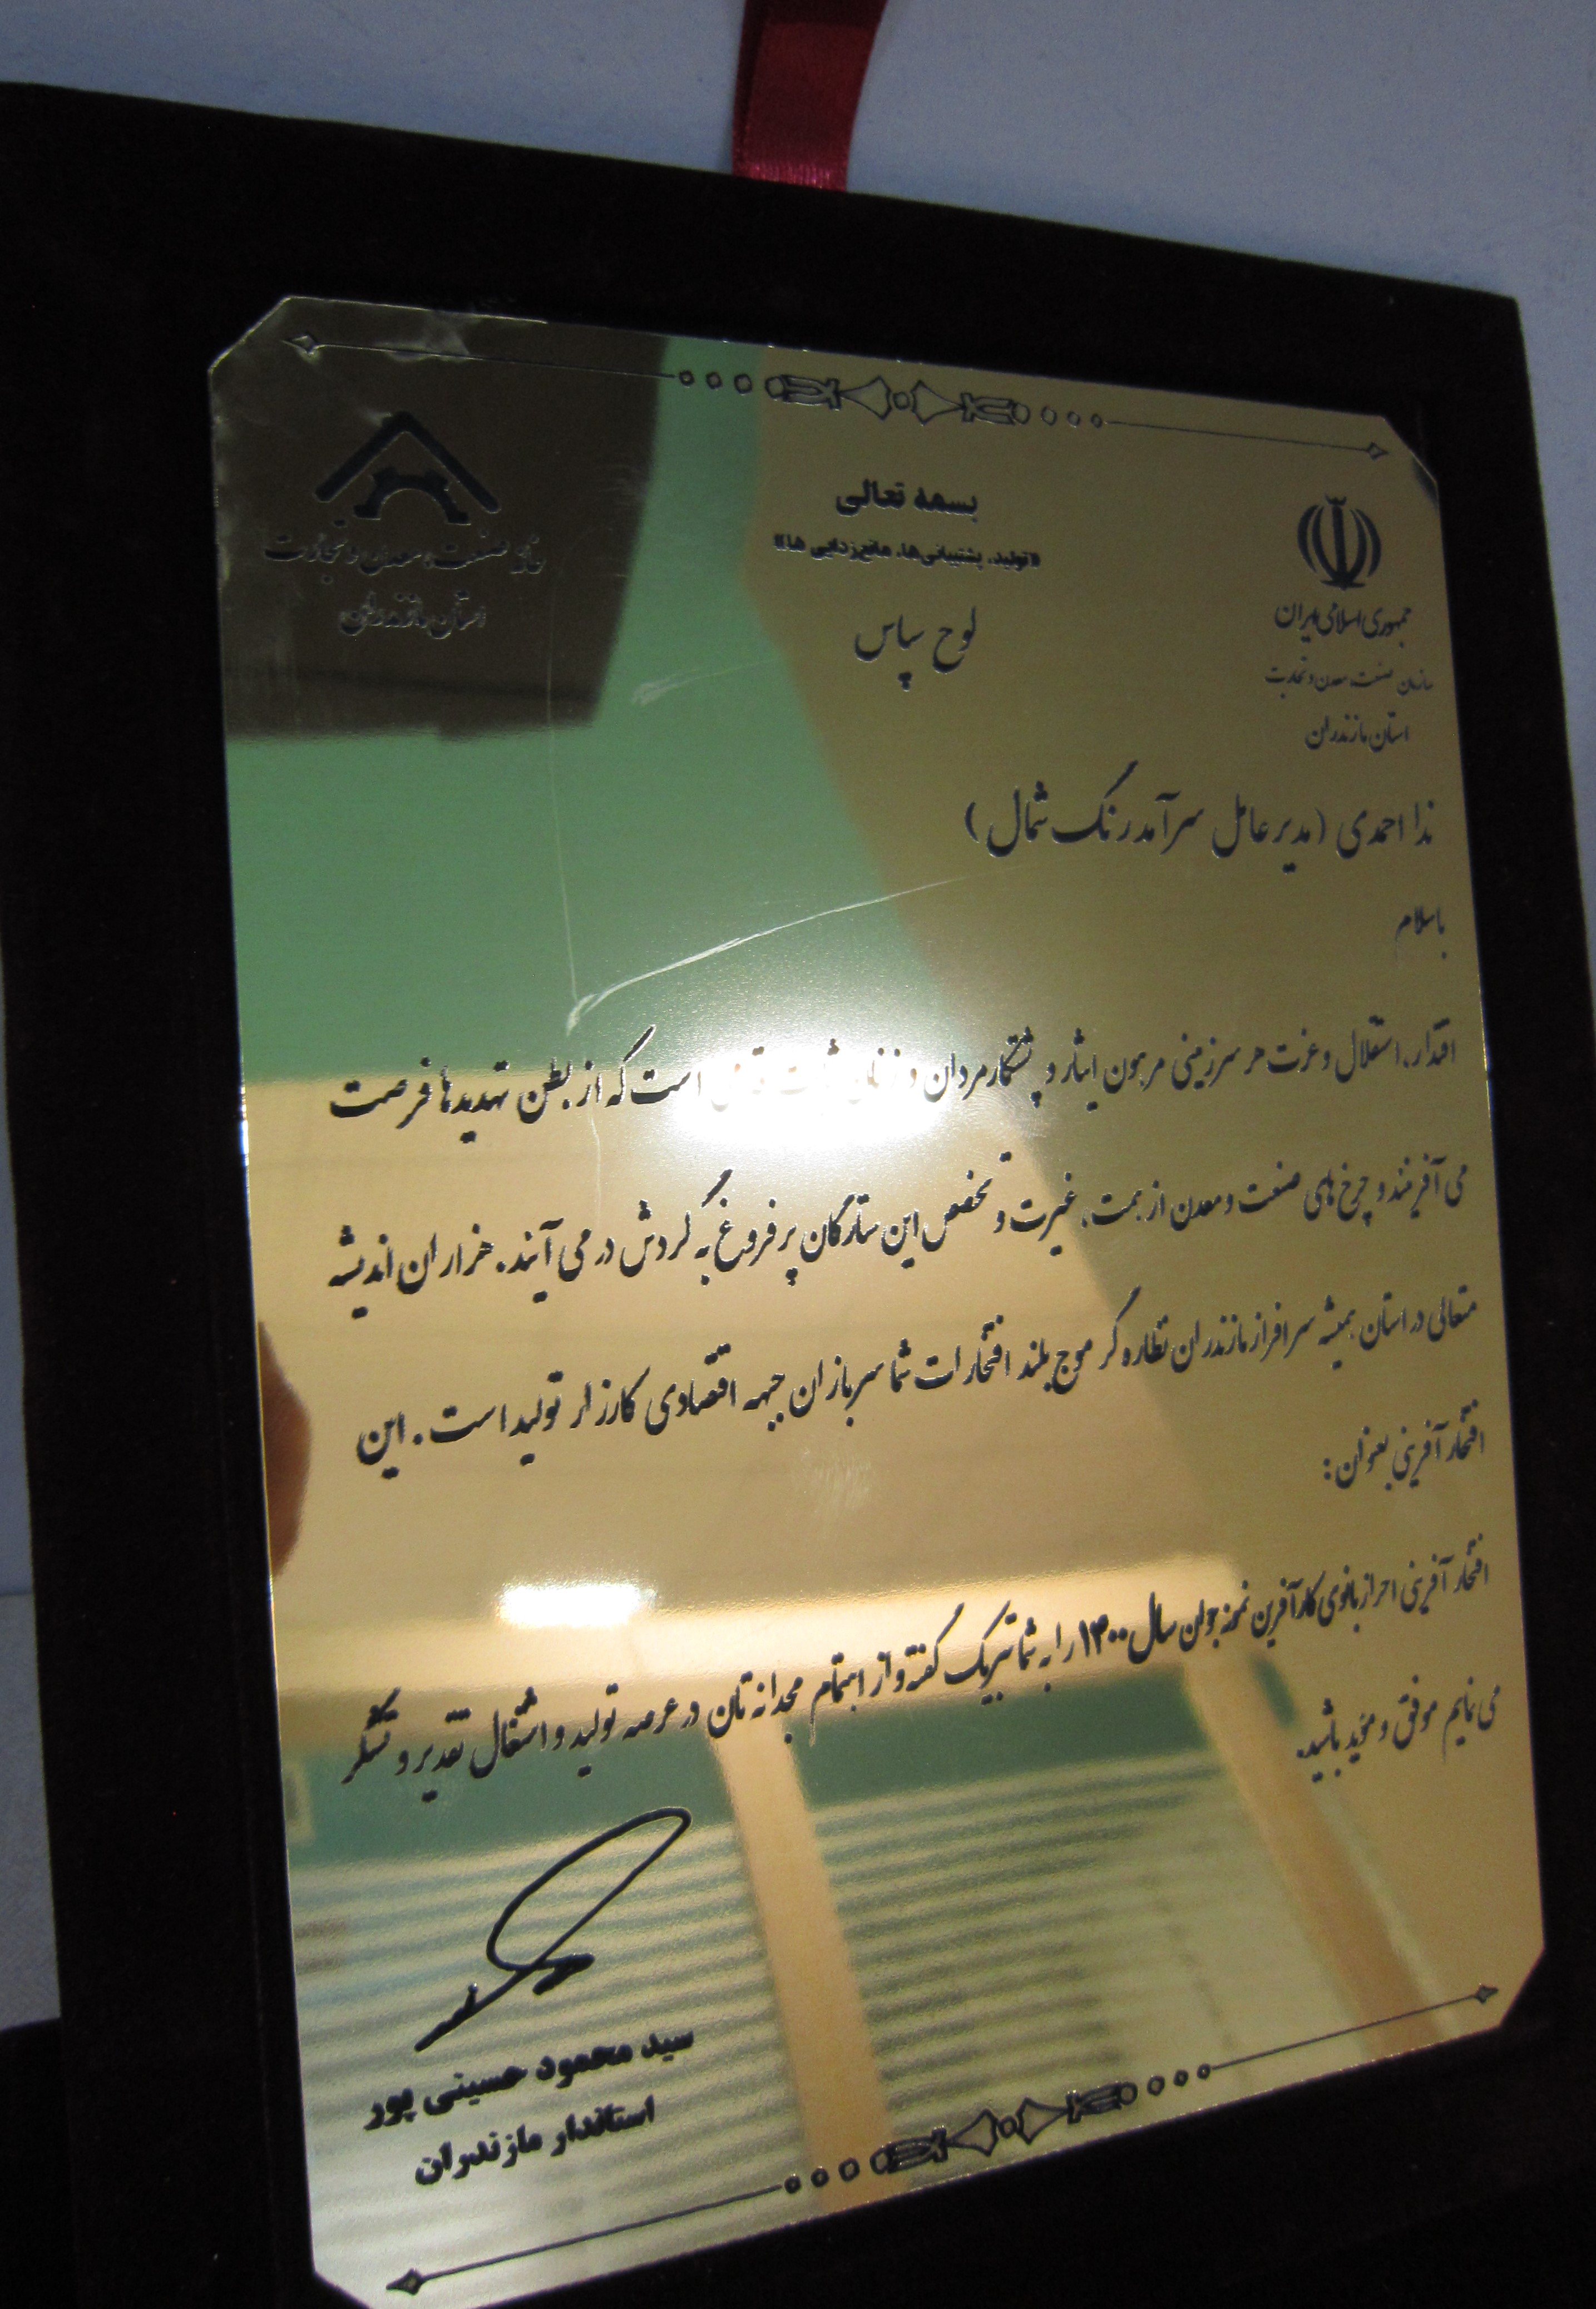 بسمه تعالی
«تولید، پشتیبانی‌ها، مانع‌زدایی ها»
لوح سپاس
جمهوری اسلامی ایران
سازمان صنعت، معدن و تجارت
استان مازندران
خانه صنعت، معدن و تجارت
استان مازندران
ندا احمدی (مدیرعامل سرآمد رنگ شمال)
باسلام
اقتدار، استقلال و عزت هر سرزمینی مرهون ایثار و پشتکار مردان و زنان است که از بطن تهدیدها فرصت
می آفرینند و چرخ های صنعت و معدن از همت، غیرت و تخصص این ستارگان پرفروغ به گردش در می آیند. هزاران اندیشه
متعالی در استان همیشه سرافراز مازندران نظاره گر موج بلند افتخارات شما سربازان جبهه اقتصادی کارزار تولید است. این
افتخار آفرینی بعنوان:
افتخار آفرینی احراز بانوی کارآفرین نمونه جوان سال ۱۴۰۰ را به شما تبریک گفته و از اهتمام مجدانه تان در عرصه تولید و اشتغال تقدیر و تشکر
می نمایم موفق و موید باشید.
سید محمود حسینی پور
استاندار مازندران